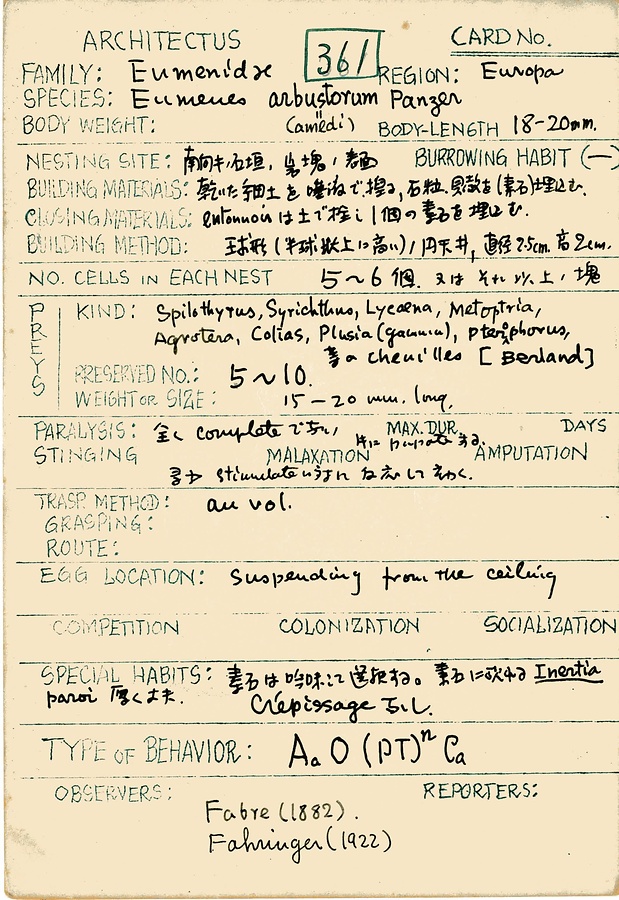 ARCHITECTUS 361 CARD No.
FAMILY: Eumenidæ REGION: Europa
SPECIES: Eumenes arbustorum Panzer
BODY WEIGHT: (amédi) BODY-LENGTH 18-20mm.
NESTING SITE: 南向キ石垣, 岩塊, 壁面 BURROWING HABIT (—)
BUILDING MATERIALS: 乾いた細土を唾液で捏る, 石粒, 貝殻を(素石)埋込む.
CLOSING MATERIALS: entonnoir は土で栓し 1個の素石を埋込む.
BUILDING METHOD: 球形(半球状上に高い), 円天井, 直径2.5cm. 高2cm.
NO. CELLS IN EACH NEST 5~6個. 又はそれ以上, 塊
PREYS KIND: Spilothyrus, Syrichthus, Lycaena, Metoptria,
Agrotera, Colias, Plusia (gamma), pterophorus,
等の chenilles [Berland]
PRESERVED NO.: 5~10.
WEIGHT OR SIZE: 15-20 mm. long,
PARALYSIS: 全く complete でない, MAX. DUR. DAYS
pupate する.
STINGING MALAXATION AMPUTATION
stimulate
TRASP. METHOD: au vol.
GRASPING:
ROUTE:
EGG LOCATION: Suspending from the ceiling
COMPETITION COLONIZATION SOCIALIZATION
SPECIAL HABITS: 素石は吟味して選択する。 素石に於ける Inertia
paroi 厚く丈夫. Crépissage なし.
TYPE OF BEHAVIOR: Aa O (PT)ⁿ Ca
OBSERVERS: REPORTERS:
Fabre (1882).
Fahringer (1922)